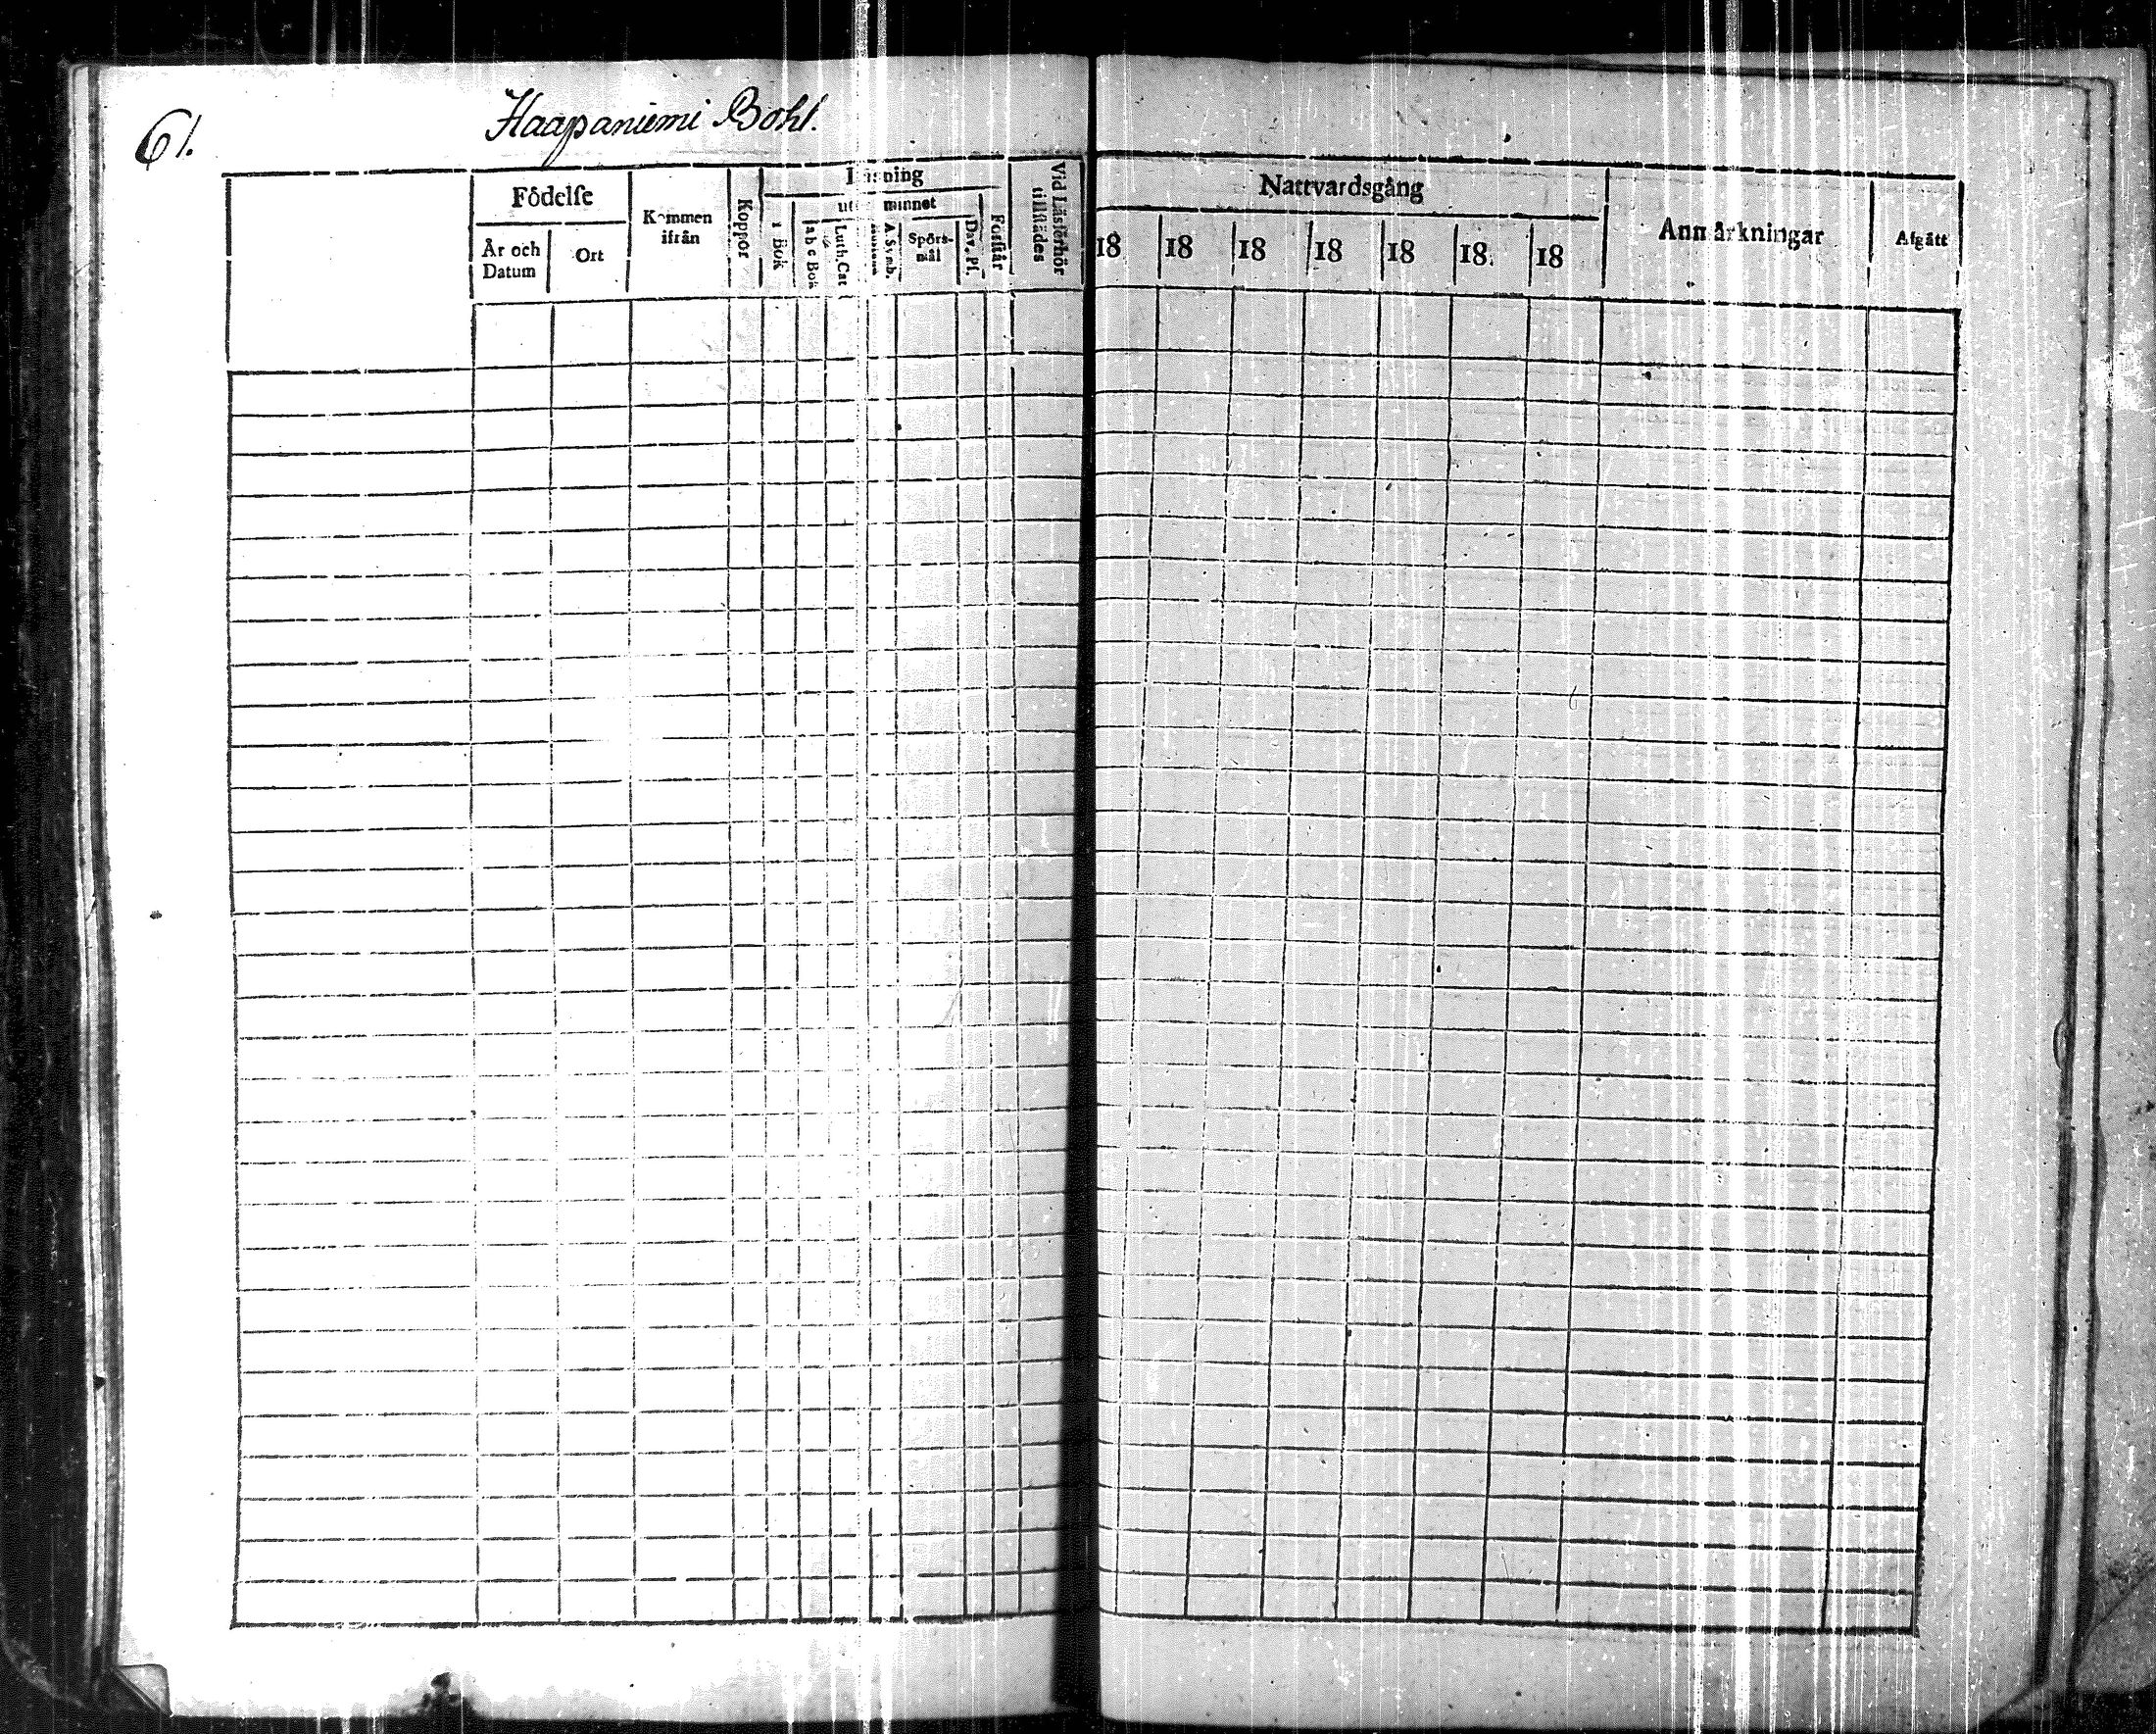 61.
Haapaniemi Bohl.
Födelse
År och Datum
Ort
Kommen ifrån
Koppor
Läsning
i Bok
utur minnet
a b c Bok
Luth. Cat
A. Symb.
Spörsmål
Dav. Ps.
Förstår
Vid Läsförhör tillstädes
Nattvardsgång
18 18 18 18 18 18. 18
Anmärkningar
Afgått